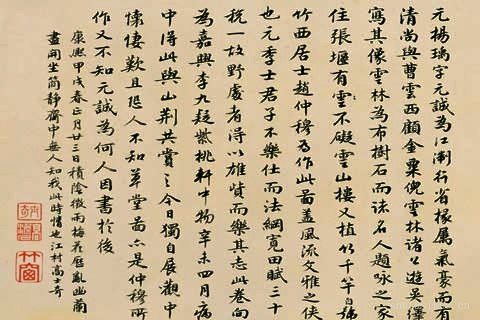 元楊瑀字元誠為江浙行省掾屬氣豪而有
清尚與曹雲西顧金粟倪雲林諸公遊吳繹
寫其像雲林為布樹石而諸名人題詠之家
住張堰有雲不礙雲山樓又植竹千竿自號
竹西居士趙仲穆為作此圖蓋風流文雅之俠
也元季士君子不樂仕而法網寬田賦三十
稅一故野處者得以雄貲而樂其志此卷向
為嘉興李九疑紫桃軒中物辛未四月病
中得此與山荆共賞之今日獨自展觀中
懷悽歎且恐人不知草堂圖亦是仲穆所
作又不知元誠為何人因書於後
康熙甲戌春正月廿三日積陰微雨梅花庭亂幽蘭
盡開坐簡靜齋中無人知我此時情也江村高士奇
竹窗